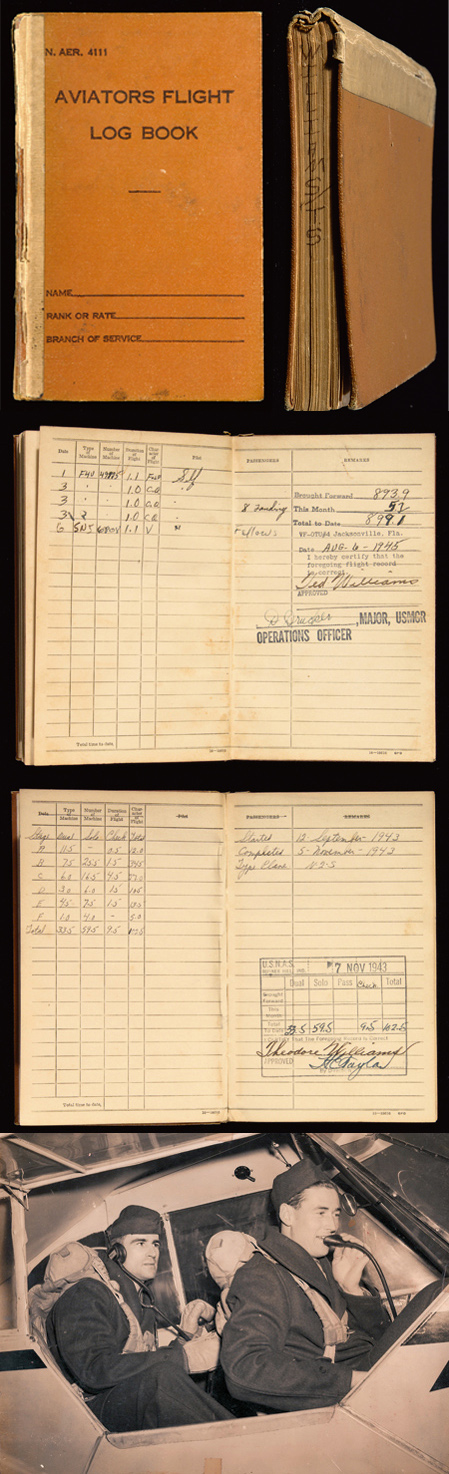 N. AER. 4111
AVIATORS FLIGHT
LOG BOOK
NAME
RANK OR RATE
BRANCH OF SERVICE
WILLIAMS
Date Type of Machine Number of Machine Duration of Flight Character of Flight Pilot PASSENGERS REMARKS
1 F4U 1.1 Self
3 " " 1.0 "
3 " " 1.0 "
3 1.0 "
6 SNJ 1.1 V "
8 Landing
Brought Forward 893.9
This Month 5.2
Total to Date 899.1
VF-OTU#4 Jacksonville, Fla.
Date AUG-6-1945
I hereby certify that the
foregoing flight record
is correct.
Ted Williams
APPROVED
, MAJOR, USMCR
OPERATIONS OFFICER
Total time to date,
Date Type of Machine Number of Machine Duration of Flight Character of Flight Pilot PASSENGERS REMARKS
Stage Dual Solo Check Total
A 11.5 - 0.5 12.0
B 7.5 25.5 1.5 34.5
C 6.0 16.5 4.5 27.0
D 3.0 6.0 1.5 10.5
E 4.5 7.5 1.5 13.5
F 1.0 4.0 - 5.0
Total 33.5 59.5 9.5 102.5
Started 12 September 1943
Completed 5 November 1943
Type Plane N2S
U.S.N.A.S.
7 NOV 1943
Dual Solo Pass Check Total
Brought Forward
This Month
Total To Date 33.5 59.5 9.5 102.5
I Certify That The Foregoing Record Is Correct
Theodore Williams
APPROVED
Total time to date,